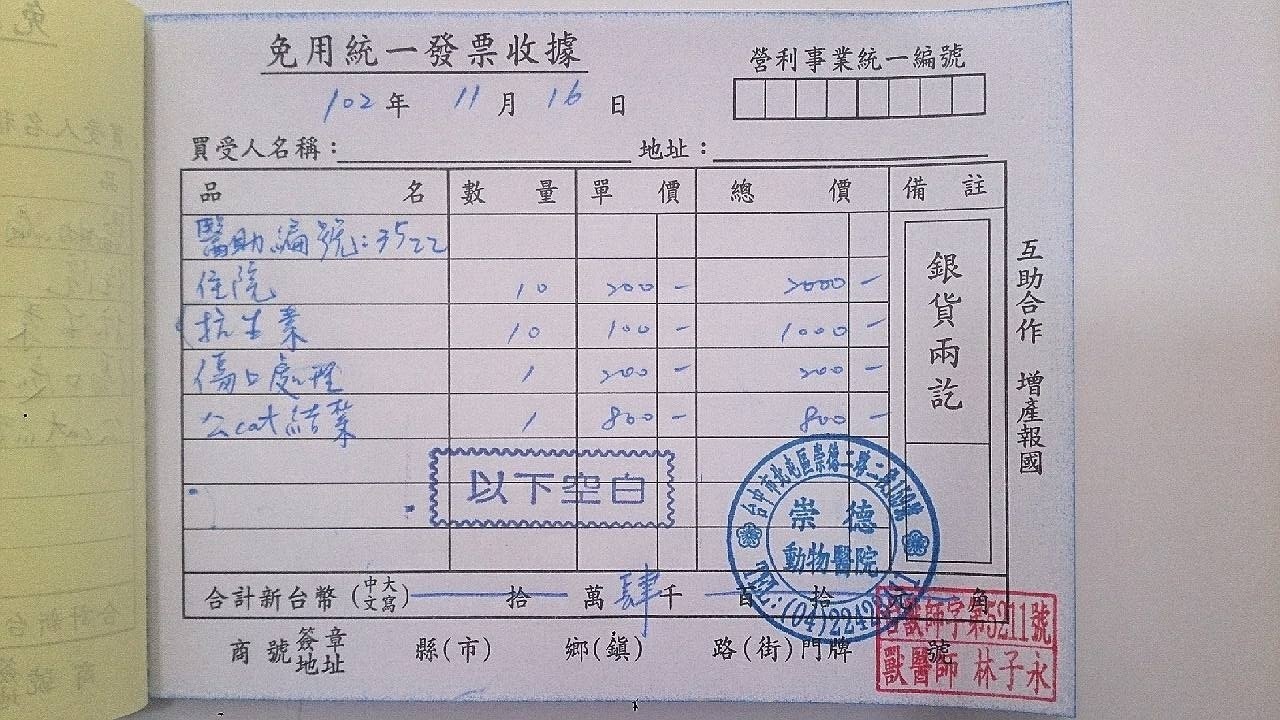 免用統一發票收據
營利事業統一編號
102年 11月 16日
買受人名稱: 地址:
品名 數量 單價 總價 備註
醫助編號:3522
住院 10 200- 2000-
抗生素 10 100- 1000-
傷口處理 1 200- 200-
公cat結紮 1 800- 800-
以下空白
銀貨兩訖
互助合作 增產報國
台中市北屯區崇德二路二段
崇德
動物醫院
TEL:(04)2242
合計新台幣(中文大寫) 拾 萬 肆千 百 拾 元 角
商號簽章地址 縣(市) 鄉(鎮) 路(街)門牌 號
獸師字第5211號
獸醫師 林子永